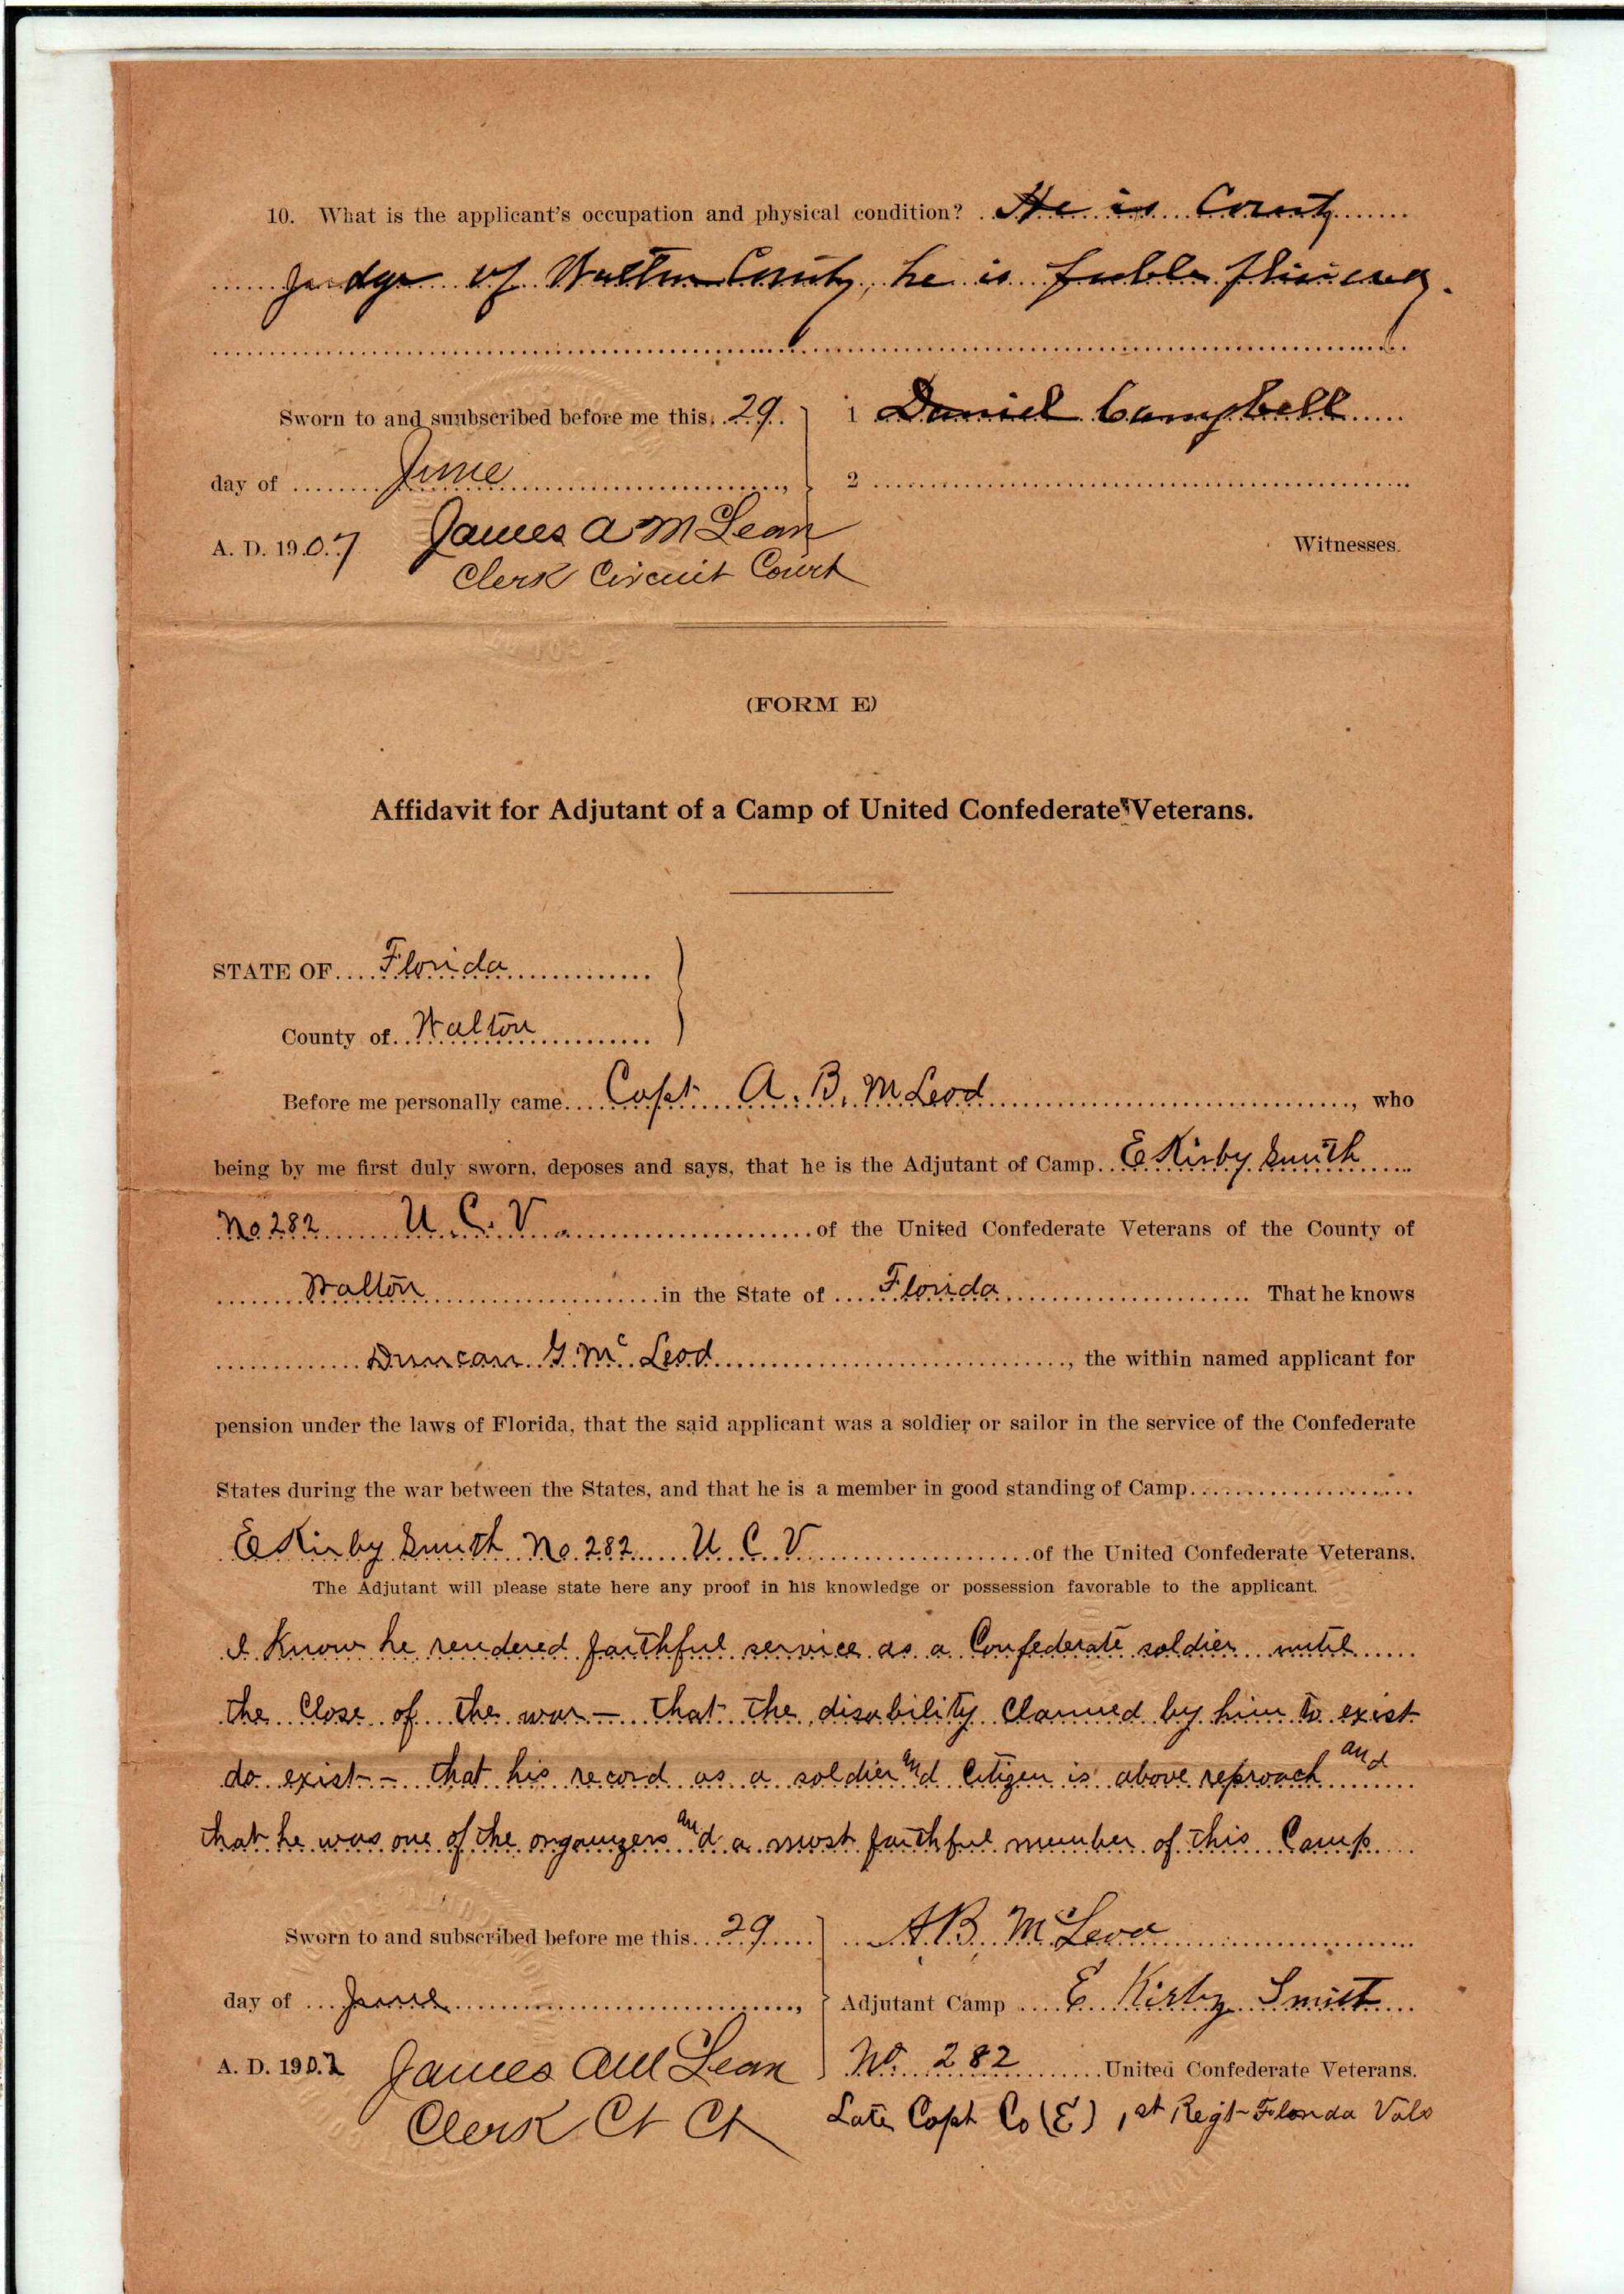 10. What is the applicant's occupation and physical condition? He is County
Judge of Walton County, he is feeble
Sworn to and suubscribed before me this 29
1 Daniel Campbell
day of June,
2
A. D. 1907 James A McLean
Clerk Circuit Court
Witnesses.
(FORM E)
Affidavit for Adjutant of a Camp of United Confederate Veterans.
STATE OF Florida
County of Walton
Before me personally came Capt A. B. McLeod, who
being by me first duly sworn, deposes and says, that he is the Adjutant of Camp E Kirby Smith
No 282 U. C. V. of the United Confederate Veterans of the County of
Walton in the State of Florida That he knows
Duncan G. McLeod, the within named applicant for
pension under the laws of Florida, that the said applicant was a soldier or sailor in the service of the Confederate
States during the war between the States, and that he is a member in good standing of Camp
E Kirby Smith No 282 U C V of the United Confederate Veterans.
The Adjutant will please state here any proof in his knowledge or possession favorable to the applicant.
I Know he rendered faithful service as a Confederate soldier until
the Close of the war - that the disability Claimed by him to exist
do exist - that his record as a soldier and Citizen is above reproach and
that he was one of the organizers and a most faithful member of this Camp
Sworn to and subscribed before me this 29
A. B. McLeod
day of June,
Adjutant Camp E Kirby Smith
A. D. 1907 James A McLean
No. 282 United Confederate Veterans.
Clerk Ct Ct
Late Capt Co (E) 1st Regt Florida Vols